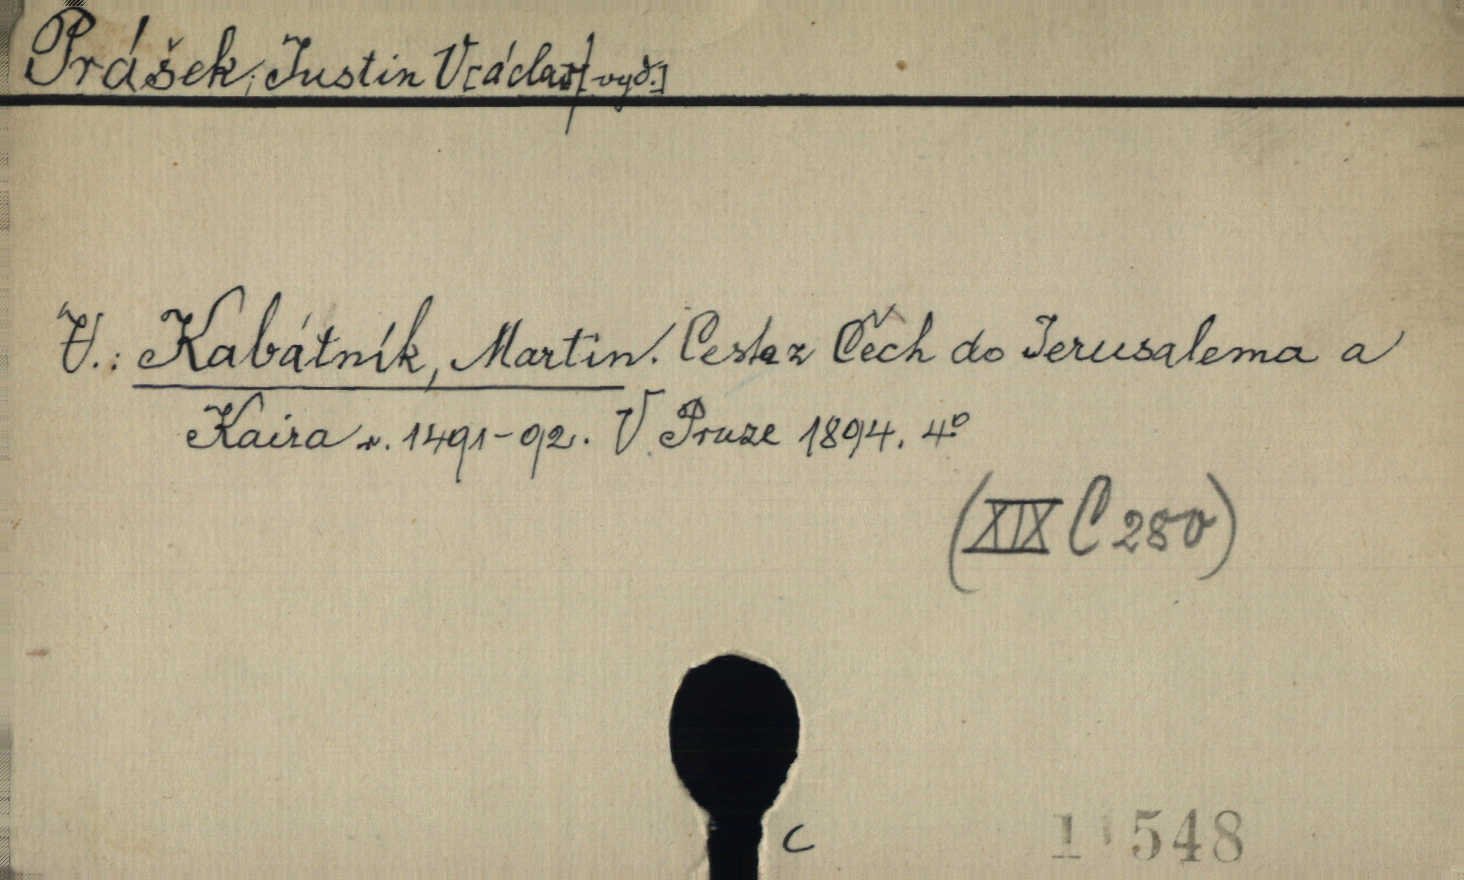 Prášek, Justin V[áclav] [vyd.]
V.: Kabátník, Martin. Cesta z Čech do Jerusalema a
Kaira r. 1491-92. V Praze 1894. 4°
(XIX C 280)
C
548